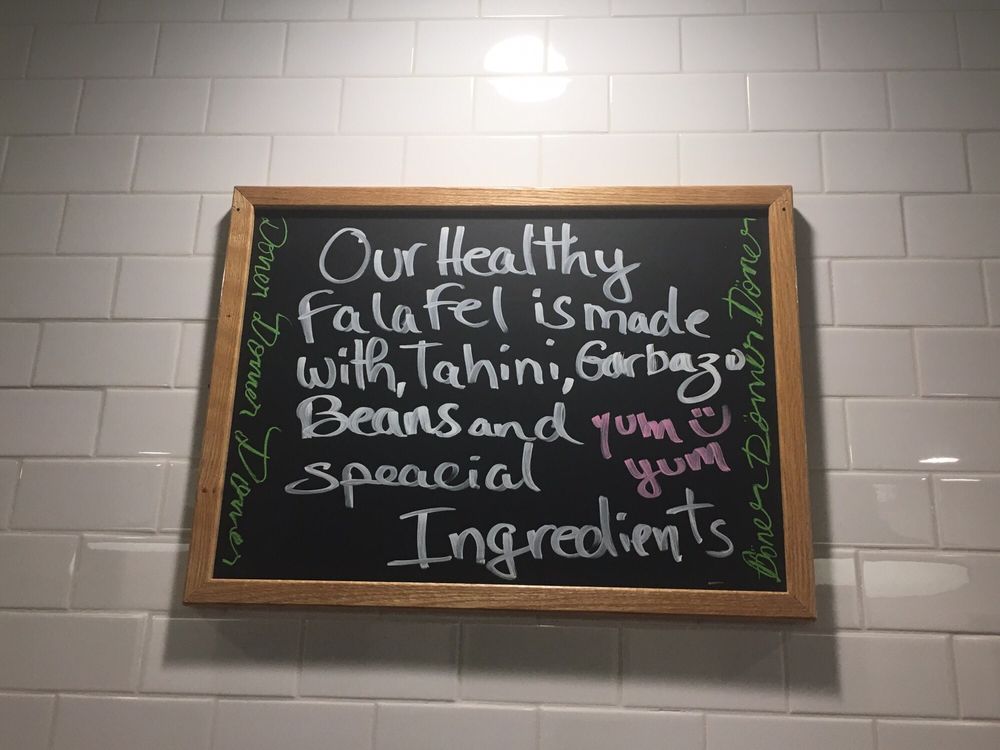 Our Healthy
Falafel is made
with, Tahini, Garbazo
Beans and yum
yum
speacial
Ingredients
Doner Dorner Dorner
Döner Dömer Döner